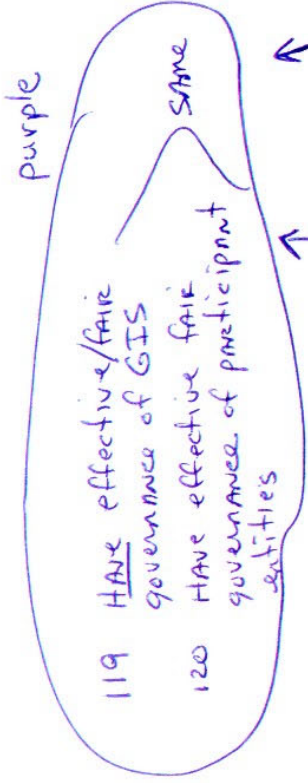 purple
119 HAVE effective/fair
governance of GIS
120 HAVE effective fair
governance of participant
entities
same